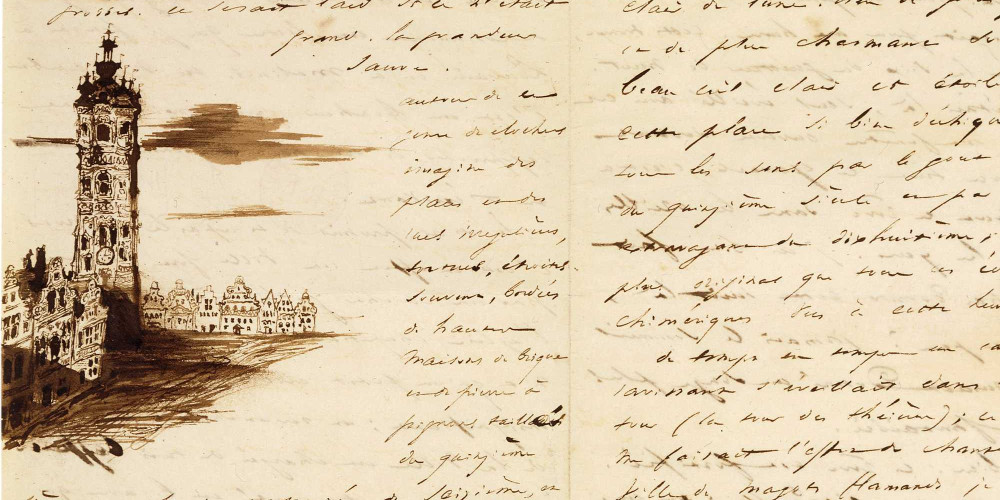 grosses. Ce serait laid si ce n'était
grand. la grandeur
sauve.
autour de ce
genre de clochers
imagine des
places et des
rues irrégulières,
tortues, étroites
souvent, bordées
de hautes
maisons de brique
et de pierre à
pignons taillés
du quinzième
seizième, et
clair de lune. Rien de plus
ce de plus charmant
beau ciel clair et étoilé
cette place si bien déchiquetée
tous les sens par le goût
du quinzième siècle et par
extravagant du dixhuitième ;
plus original que tous ces
chimériques vus à cette
de temps en temps un
ravissant s'éveillait dans
tour (la tour des théières) ; ce
me faisait l'effet de chant
ville de magots flamands je